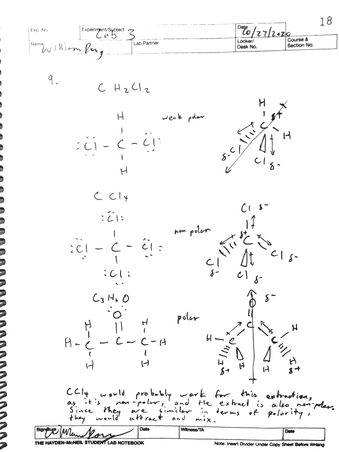 18
Exp. No. Experiment/Subject Lab 3 Date 10/27/2020
Name William Lab Partner Locker/Desk No. Course & Section No.
9.
C H2Cl2
weak polar
H
:Cl - C - Cl:
H
H
δ+
C H
δ- Cl
Cl δ-
C Cl4
non polar
:Cl:
:Cl - C - Cl:
:Cl:
Cl δ-
δ+
C
Cl δ-
Cl δ-
Cl δ-
C3H6O
polar
:O
H H
H - C - C - C - H
H H
O δ-
C
H C C H
H H H H
CCl4 would probably work for this extraction,
as it's non-polar, and the extract is also non-polar.
Since they are similar in terms of polarity,
they would attract and mix.
Signature Date Witness/TA Date
THE HAYDEN-McNEIL STUDENT LAB NOTEBOOK Note: Insert Divider Under Copy Sheet Before Writing